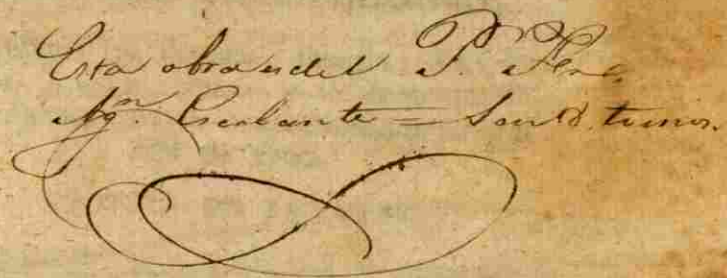 Esta obra es del P. Fr.
Agn. Escalante = Son 8. tomos.